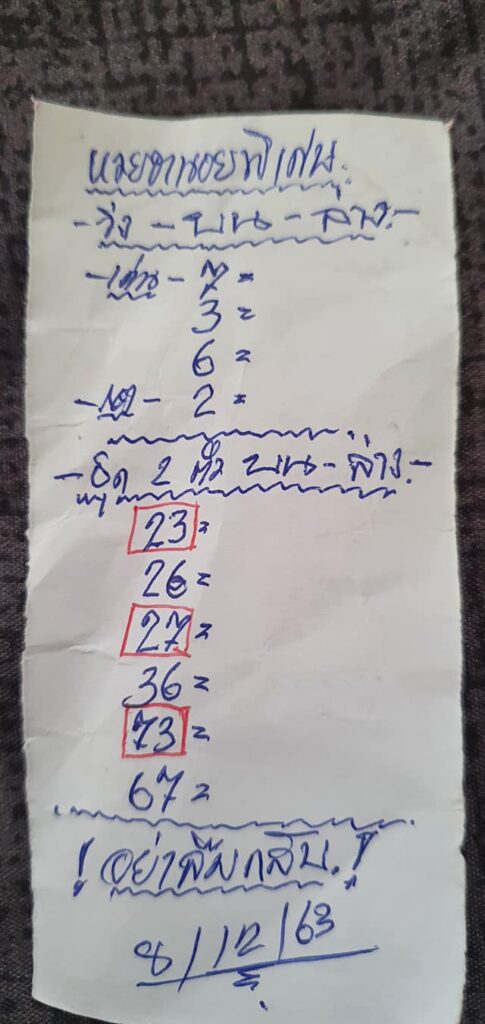 หมอยานอยพิเศษ.
-วิ่ง - บน - ล่าง.-
-เด่น- 7 =
3 =
6 =
2 =
-ชุด 2 ตัว บน - ล่าง.-
23 =
26 =
27 =
36 =
73 =
67 =
! อย่าลืมกลับ. !
8/12/63